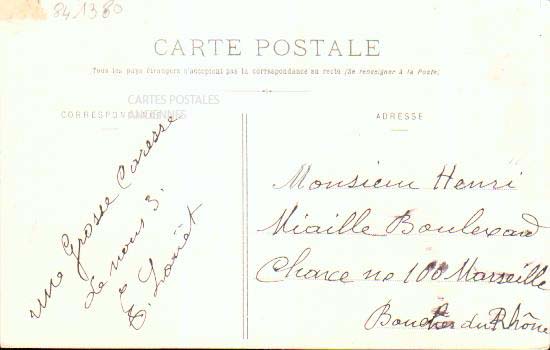 841380
CARTE POSTALE
Tous les pays étrangers n'acceptent pas la correspondance au recto (Se renseigner à la Poste)
CARTES POSTALES
ANCIENNES
CORRESPONDANCE
ADRESSE
une Grosse Caresse
de nous 3.
E.
Monsieur Henri
Miaille Boulevard
Chave no 100 Marseille
Bouches du Rhône